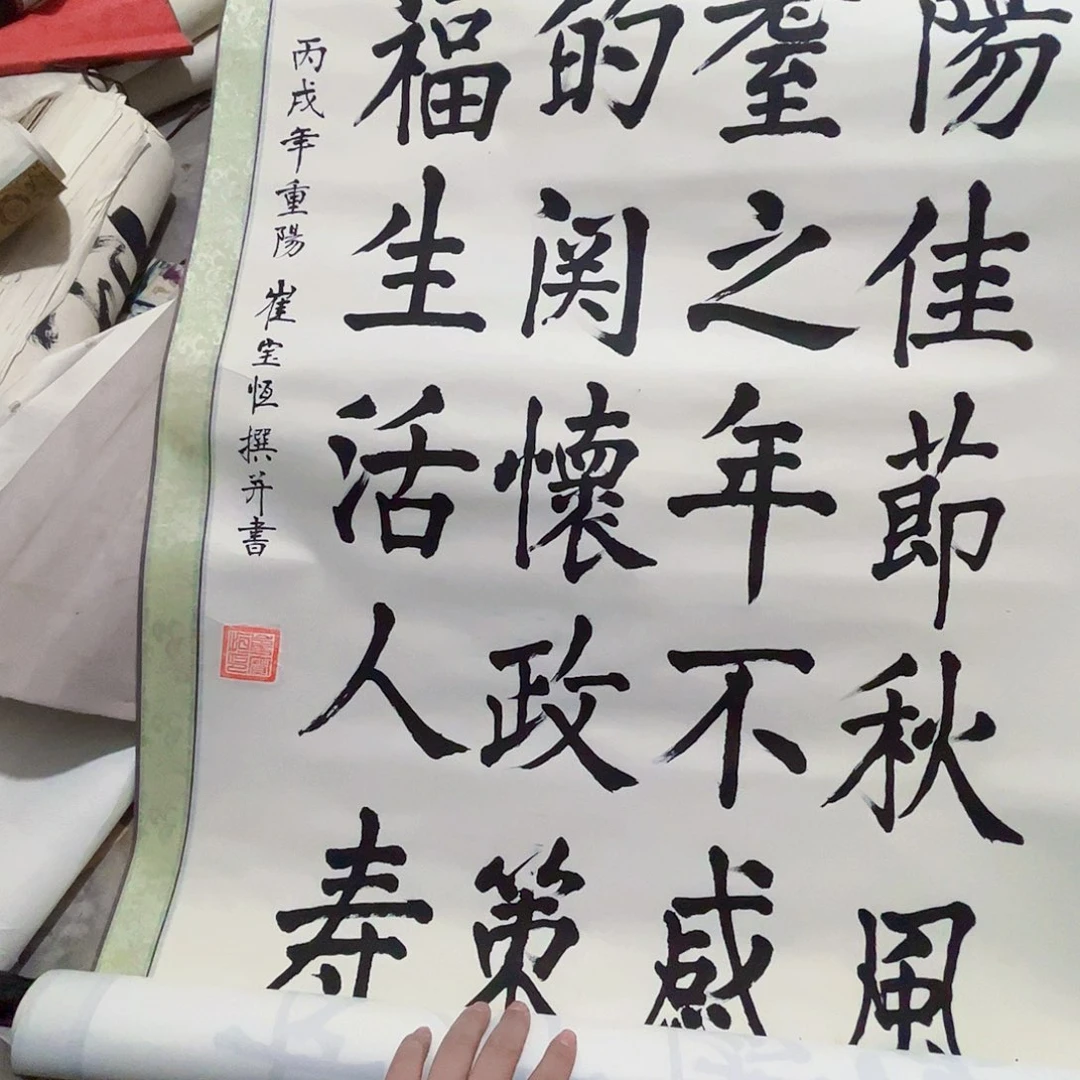 陽佳節秋風
耋之年不感
的関懷政策
福生活人寿
丙戌年重陽 崔宝恒撰并書